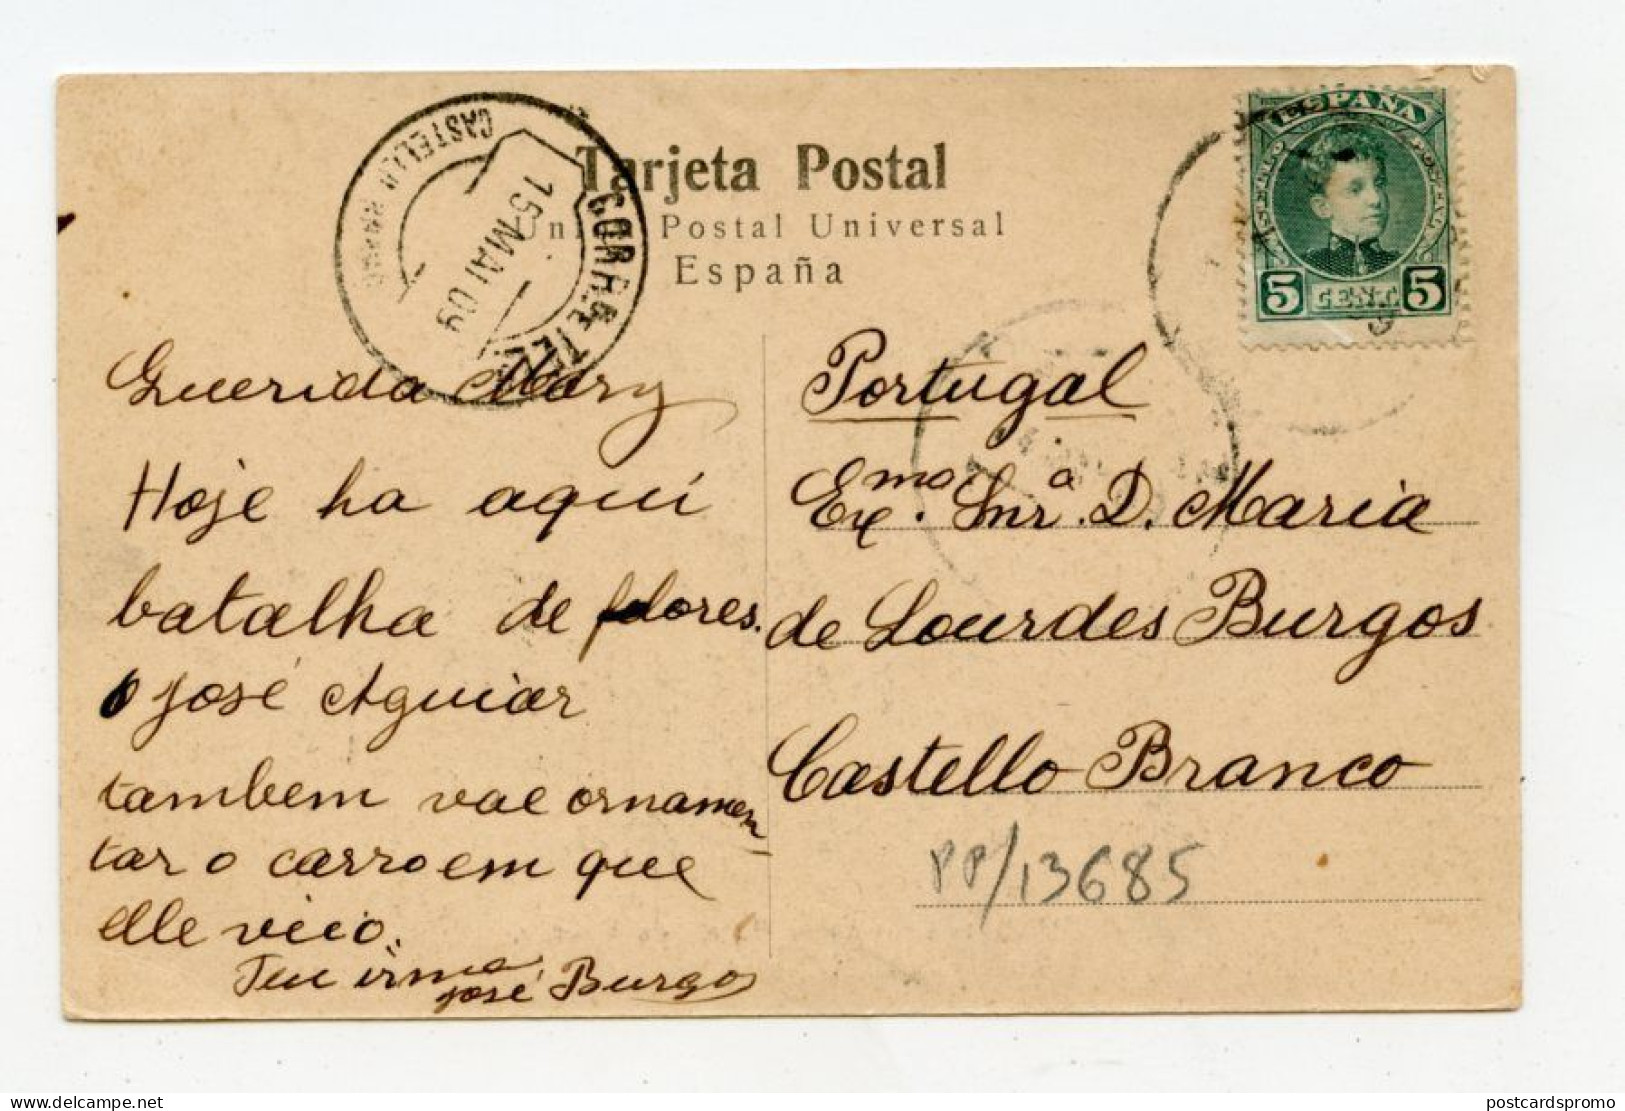 Tarjeta Postal
Unión Postal Universal
España
CORRº E TELº
15 MAI 09
CASTELLO BRANCO
ESPAÑA
5 CENT. 5
Querida Mary
Hoje ha aqui
batalha de flores.
o José Aguiar
tambem vae ornamen-
tar o carro em que
elle veio.
Teu irmão
José Burgos
Portugal
Exmo. Snra. D. Maria
de Lourdes Burgos
Castello Branco
PP/13685
postcardspromo